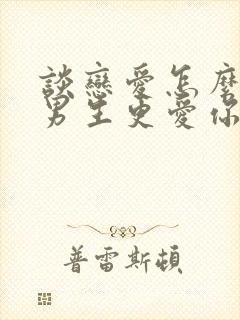 談戀愛怎麼
男生更愛你
普雷斯頓